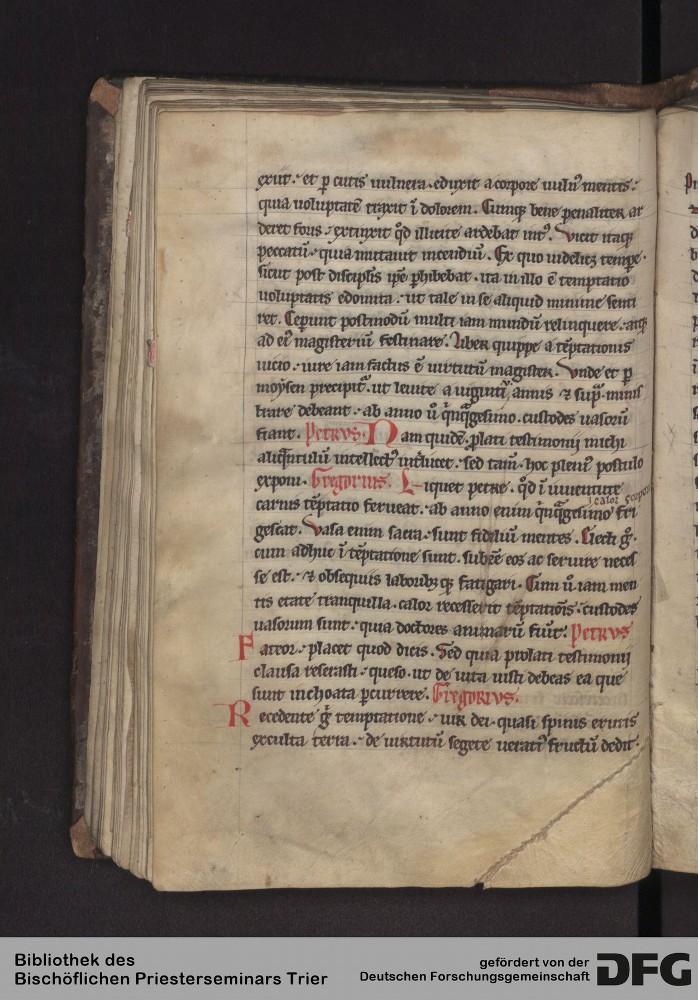 exiit. et p cutis uulnera. eduxit a corpore uuln᷒ mentis.
quia uoluptatē traxit ī dolorem. Cumq; bene penaliter ar
deret foris. extinxit qd̄ illicite ardebat int᷒. Vicit itaq;
peccatū. quia mutauit incendiū. Ex quo uidelicz tempe.
sicut post discipl̄is ip̄e phibebat. ita in illo ē temptatio
uoluptatis edomita. ut tale in se aliquid minime senti
ret. Ceperunt postmodū multi iam mundū relinquere. atq;
ad ei᷒ magisteriū festinare. Liber quippe a tēptationis
uicio. iure iam factus ē uirtutū magister. Vnde et p
moysen precipit᷑. ut leuite a uiginti annis & sup᷑. minis
trare debeant. ab anno ū qͥnqᷓgesimo. custodes uasorū
fiant. Petrvs. Nam quidē. plati testimonij michi
aliqͣntulū intellect᷒ int᷑lucet. sed tam̄. hoc pleni᷒ postulo
exponi. Gregorius. Liquet petre. qd̄ ī iuuentute
i calor corporis
carnis tēptatio ferueat. ab anno enim qͥnqᷓgesimo fri
gescat. Vasa enim sacra. sunt fideliū mentes. Electi gͦ.
cum adhuc ī tēptatione sunt. subēē eos ac seruire neces
se est. & obsequiis laborib; q; fatigari. Cum ū iam men
tis etate tranquilla. calor recesserit tēptatiōis. custodes
uasorum sunt. quia doctores animarū fiu᷑t. Petrvs
Fateor. placet quod dicis. Sed quia prolati testimonij
clausa reserasti. queso. ut de uita iusti debeas ea que
sunt inchoata pcurrere. Gregorivs.
Recedente gͦ temptatione. uir dei. quasi spinis erutis
exculta terra. de uirtutū segete uerati᷒ fructū dedit.
Bibliothek des
Bischöflichen Priesterseminars Trier
gefördert von der
Deutschen Forschungsgemeinschaft
DFG